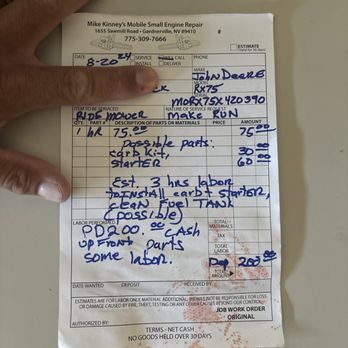 Mike Kinney's Mobile Small Engine Repair
1655 Sawmill Road • Gardnerville, NV 89410
775-309-7666
#
ESTIMATE
DATE 8-20-24
SERVICE CALL
INSTALL DELIVER
PHONE
MAKE
John Deere
MODEL
RX75
MORX75X420390
ITEM TO BE SERVICED NATURE OF SERVICE REQUEST
RIDE MOWER make RUN
QTY. PART # DESCRIPTION OF PARTS OR MATERIALS PRICE AMOUNT
1 HR 75.00 75.00
possible parts:
carb kit, 30.00
starter 60.00
Est. 3 hrs labor
to install carb & starter,
clean Fuel Tank
(possible)
LABOR PERFORMED
TOTAL MATERIALS
PD 200.00 cash
TAX
up front parts
TOTAL LABOR
some labor.
200.00
TOTAL AMOUNT
DATE WANTED DEPOSIT RECEIVED BY
ESTIMATES ARE FOR LABOR ONLY, MATERIAL ADDITIONAL.
OR DAMAGE CAUSED BY FIRE, THEFT, TESTING
JOB WORK ORDER
ORIGINAL
AUTHORIZED BY:
TERMS - NET CASH
NO GOODS HELD OVER 30 DAYS